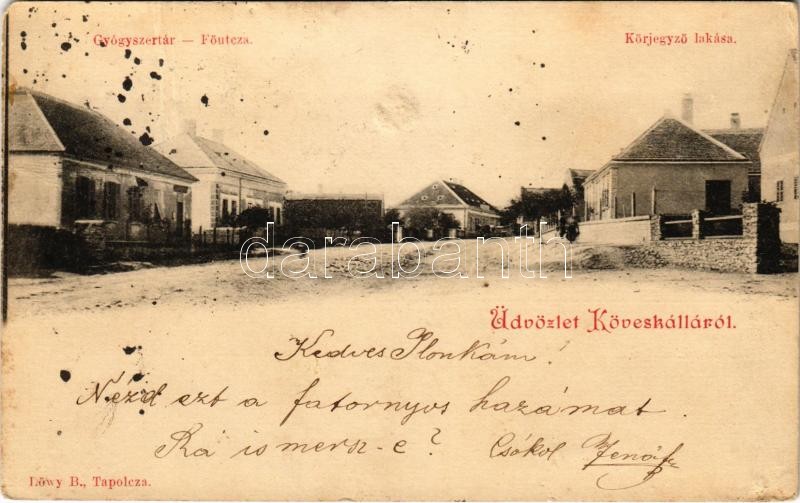 Gyógyszertár — Főutcza.
Körjegyző lakása.
darabanth
Üdvözlet Köveskálláról.
Kedves Ilonkám!
Nézd ezt a fatornyos hazámat.
Rá ismersz-e? Csókol Jenő
Löwy B., Tapolcza.